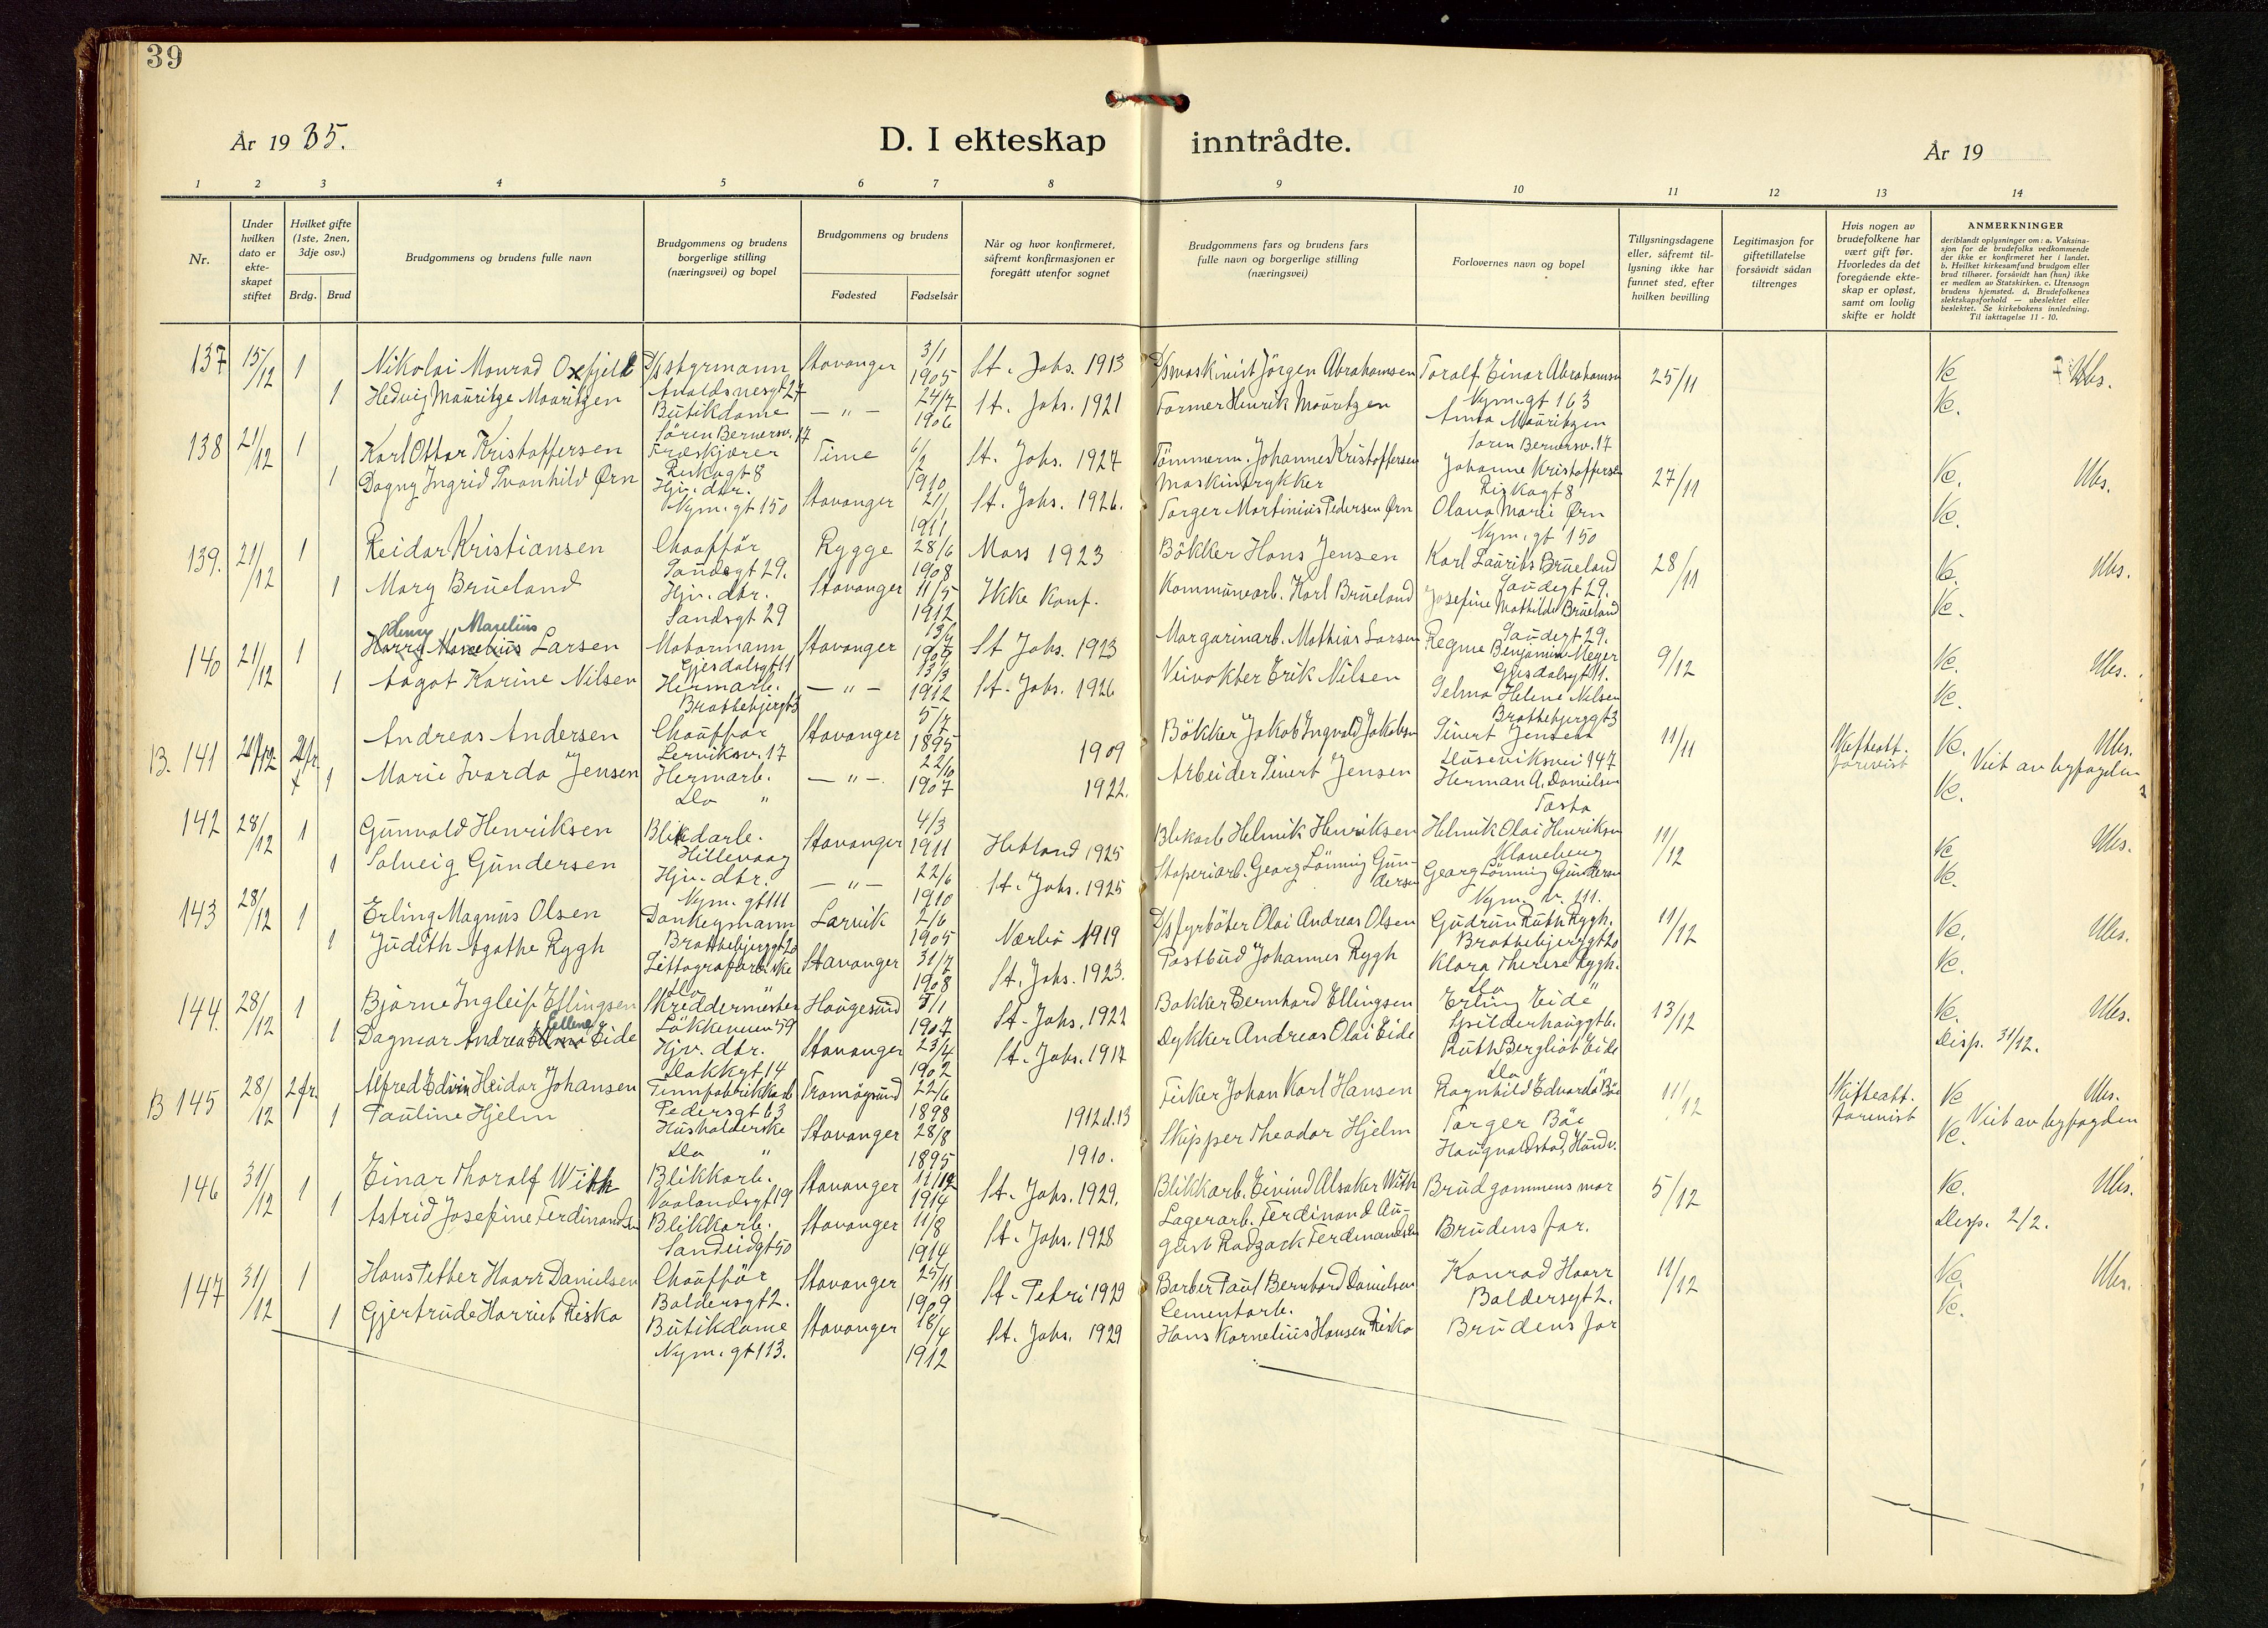 39
År 1935.
D. I ekteskap inntrådte.
År 19
1 2 3 4 5 6 7 8 9 10 11 12 13 14
Nr.
Under hvilken dato er ekte-skapet stiftet
Hvilket gifte (1ste, 2nen, 3dje osv.)
Brdg. Brud
Brudgommens og brudens fulle navn
Brudgommens og brudens borgerlige stilling (næringsvei) og bopel
Brudgommens og brudens
Fødested Fødselsår
Når og hvor konfirmeret, såfremt konfirmasjonen er foregått utenfor sognet
Brudgommens fars og brudens fars fulle navn og borgerlige stilling (næringsvei)
Forlovernes navn og bopel
Tillysningsdagene eller, såfremt til-lysning ikke har funnet sted, efter hvilken bevilling
Legitimasjon for giftetillatelse forsåvidt sådan tiltrenges
Hvis nogen av brudefolkene har vært gift før. Hvorledes da det foregående ekte-skap er opløst, samt om lovlig skifte er holdt
ANMERKNINGER
deriblandt oplysninger om: a. Vaksina-sjon for de brudefolks vedkommende der ikke er konfirmeret her i landet. b. Hvilket kirkesamfund brudgom eller brud tilhører, forsåvidt han (hun) ikke er medlem av Statskirken. c. Utensogn brudens hjemsted. d. Brudefolkenes slektskapsforhold — ubeslektet eller beslektet. Se kirkebokens innledning. Til iakttagelse 11 - 10.
137 15/12 1 Nikolai Monrad Oxefjell D/S styrmann Avaldsnesgt 27 Stavanger 3/1 1905 St. Johs. 1913 D/S maskinist Jörgen Abrahamsen Toralf Einar Abrahamsen Nym.gt 163 25/11 Ve Ubs.
1 Hedvig Mauritze Mauritzen Butikdame Sören Bernersv. 17 — " — 24/7 1906 St. Johs. 1921 Former Henrik Mauritzen Anna Mauritzen Sören Bernersv. 17 Ve.
138 21/12 1 Karl Ottar Kristoffersen Fræskjærer Riskagt 8 Time 6/2 1910 St. Johs. 1927 Tömmerm. Johannes Kristoffersen Johanne Kristoffersen Riskagt 8 27/11 Ve. Ubs.
1 Dagny Ingrid Tronhild Ørn Hjv. dtr. Nym. gt 150 Stavanger 21/1 1911 St. Johs. 1926. Maskintrykker Torger Martinius Pedersen Ørn Olava Marie Ørn Nym. gt 150 Ve.
139. 21/12 1 Reidar Kristiansen Chaufför Sandsgt 29. Rygge 28/6 1908 Moss 1923 Bökker Hans Jensen Karl Laurits Brueland Sandsgt 29. 28/11 Ve. Ubs.
1 Mary Brueland Hjv. dtr. Sandsgt 29 Stavanger 11/5 1912 Ikke konf. Kommunearb. Karl Brueland Josefine Mathilde Brueland Sandsgt 29. Ve.
140 21/12 1 Harry Marelius Henry Marelius Larsen Motormann Gjesdalsgt 11 Stavanger St Johs. 1923 Margarinarb. Mathias Larsen Regine Benjamin Meyer Gjesdalsgt 11. 9/12 Ve. Ubs.
1 Aagot Karine Nilsen Hermarb. Brattebjergt 3 — " — 13/3 1912 St. Johs. 1926 Veivokter Erik Nilsen Selma Helene Nilsen Brattebjerggt 3 Ve.
B. 141 21/12 2 fr. Andreas Andersen Chauffor Lerviksv. 17 Stavanger 5/7 1895 1909 Bökker Jakob Ingvald Jakobsen Sivert Jensen Luseviksvei 147 11/11 Skifteatt. forevist Ve. Ubs. Viet av byfogden
1 Marie Ivarda Jensen Hermarb. Do " — " — 22/10 1907 1922. Arbeider Sivert Jensen Herman A. Danielsen Tasta Ve.
142 28/12 1 Gunvald Henriksen Blikdarb. Hillevaag Stavanger 4/3 1911 Hetland 1925 Blekarb Helmik Henriksen Helmik Olai Henriksen 11/12 Ve Ubs.
1 Solveig Gundersen Hjv. dtr. Nym. gt 111 — " — 22/6 1910 St. Johs. 1925 Støperiarb. Georg Lönning Gundersen Georg Lönning Gundersen Nym. gt. 111. Ve.
143 28/12 1 Erling Magnus Olsen Donkeymann Brattebjerggt 20 Larvik 2/6 1905 Nærbö 1919 D/S fyrböter Olai Andreas Olsen Gudrun Ruth Rygh. Brattebjerggt 20 11/12 Ve. Ubs.
1 Judith Agathe Rygh Littografarb.ske Do Stavanger 31/7 1908 St. Johs. 1923. Postbud Johannes Rygh Klara Therese Rygh. Do " Ve.
144. 28/12 1 Bjarne Ingleif Ellingsen Skreddermester Løkkeveien 59 Haugesund 5/1 1907 St. Johs. 1922 Bakker Bernhard Ellingsen Erling Eide 13/12 Ve. Ubs.
1 Dagmar Andrea Elline Eide Hjv. dtr. Dokkgt 14 Stavanger 23/4 1902 St. Johs. 1917 Dykker Andreas Olai Eide Ruth Bergliot Eide Do Disp. 31/12.
B 145 28/12 2 fr. Alfred Edvin Heidar Johansen Tinnfabrikkarb Pedersgt 63 Tromøysund 22/6 1898 1912 d. 13 Fisker Johan Karl Hansen Ragnhild Edvarda Böe 11/12 Skifteatt. forevist Ve Ubs. Viet av byfogden
1 Pauline Hjelm Husholderske Do " Stavanger 28/8 1895 1910. Skipper Theodor Hjelm Torger Böe Haugvaldstad, Hundv. Ve.
146 31/12 1 Einar Thoralf With Blikkarb. Vaalandsgt 19 Stavanger 11/12 1914 St. Johs. 1929. Blikkarb. Eivind Alsaker With Brudgommens mor 5/12 Ve. Ubs.
1 Astrid Josefine Ferdinandsen Blikkarb. Sandeidgt 50 Stavanger 11/8 1914 St. Johs. 1928 Lagerarb. Ferdinand August Radzack Ferdinandsen Brudens far. Disp. 2/2.
147 31/12 1 Hans Petter Haarr Danielsen Chaufför Baldersgt 2. Stavanger 25/11 1909 St. Petri 1929 Barber Paul Bernhard Danielsen Konrad Haarr Baldersgt 2. 11/12 Ve. Ubs.
1 Gjertrude Harriet Riska Butikdame Nym. gt 113. Stavanger 18/4 1912 St. Johs. 1929 Cementarb. Hans Kornelius Hansen Riska Brudens far Ve.